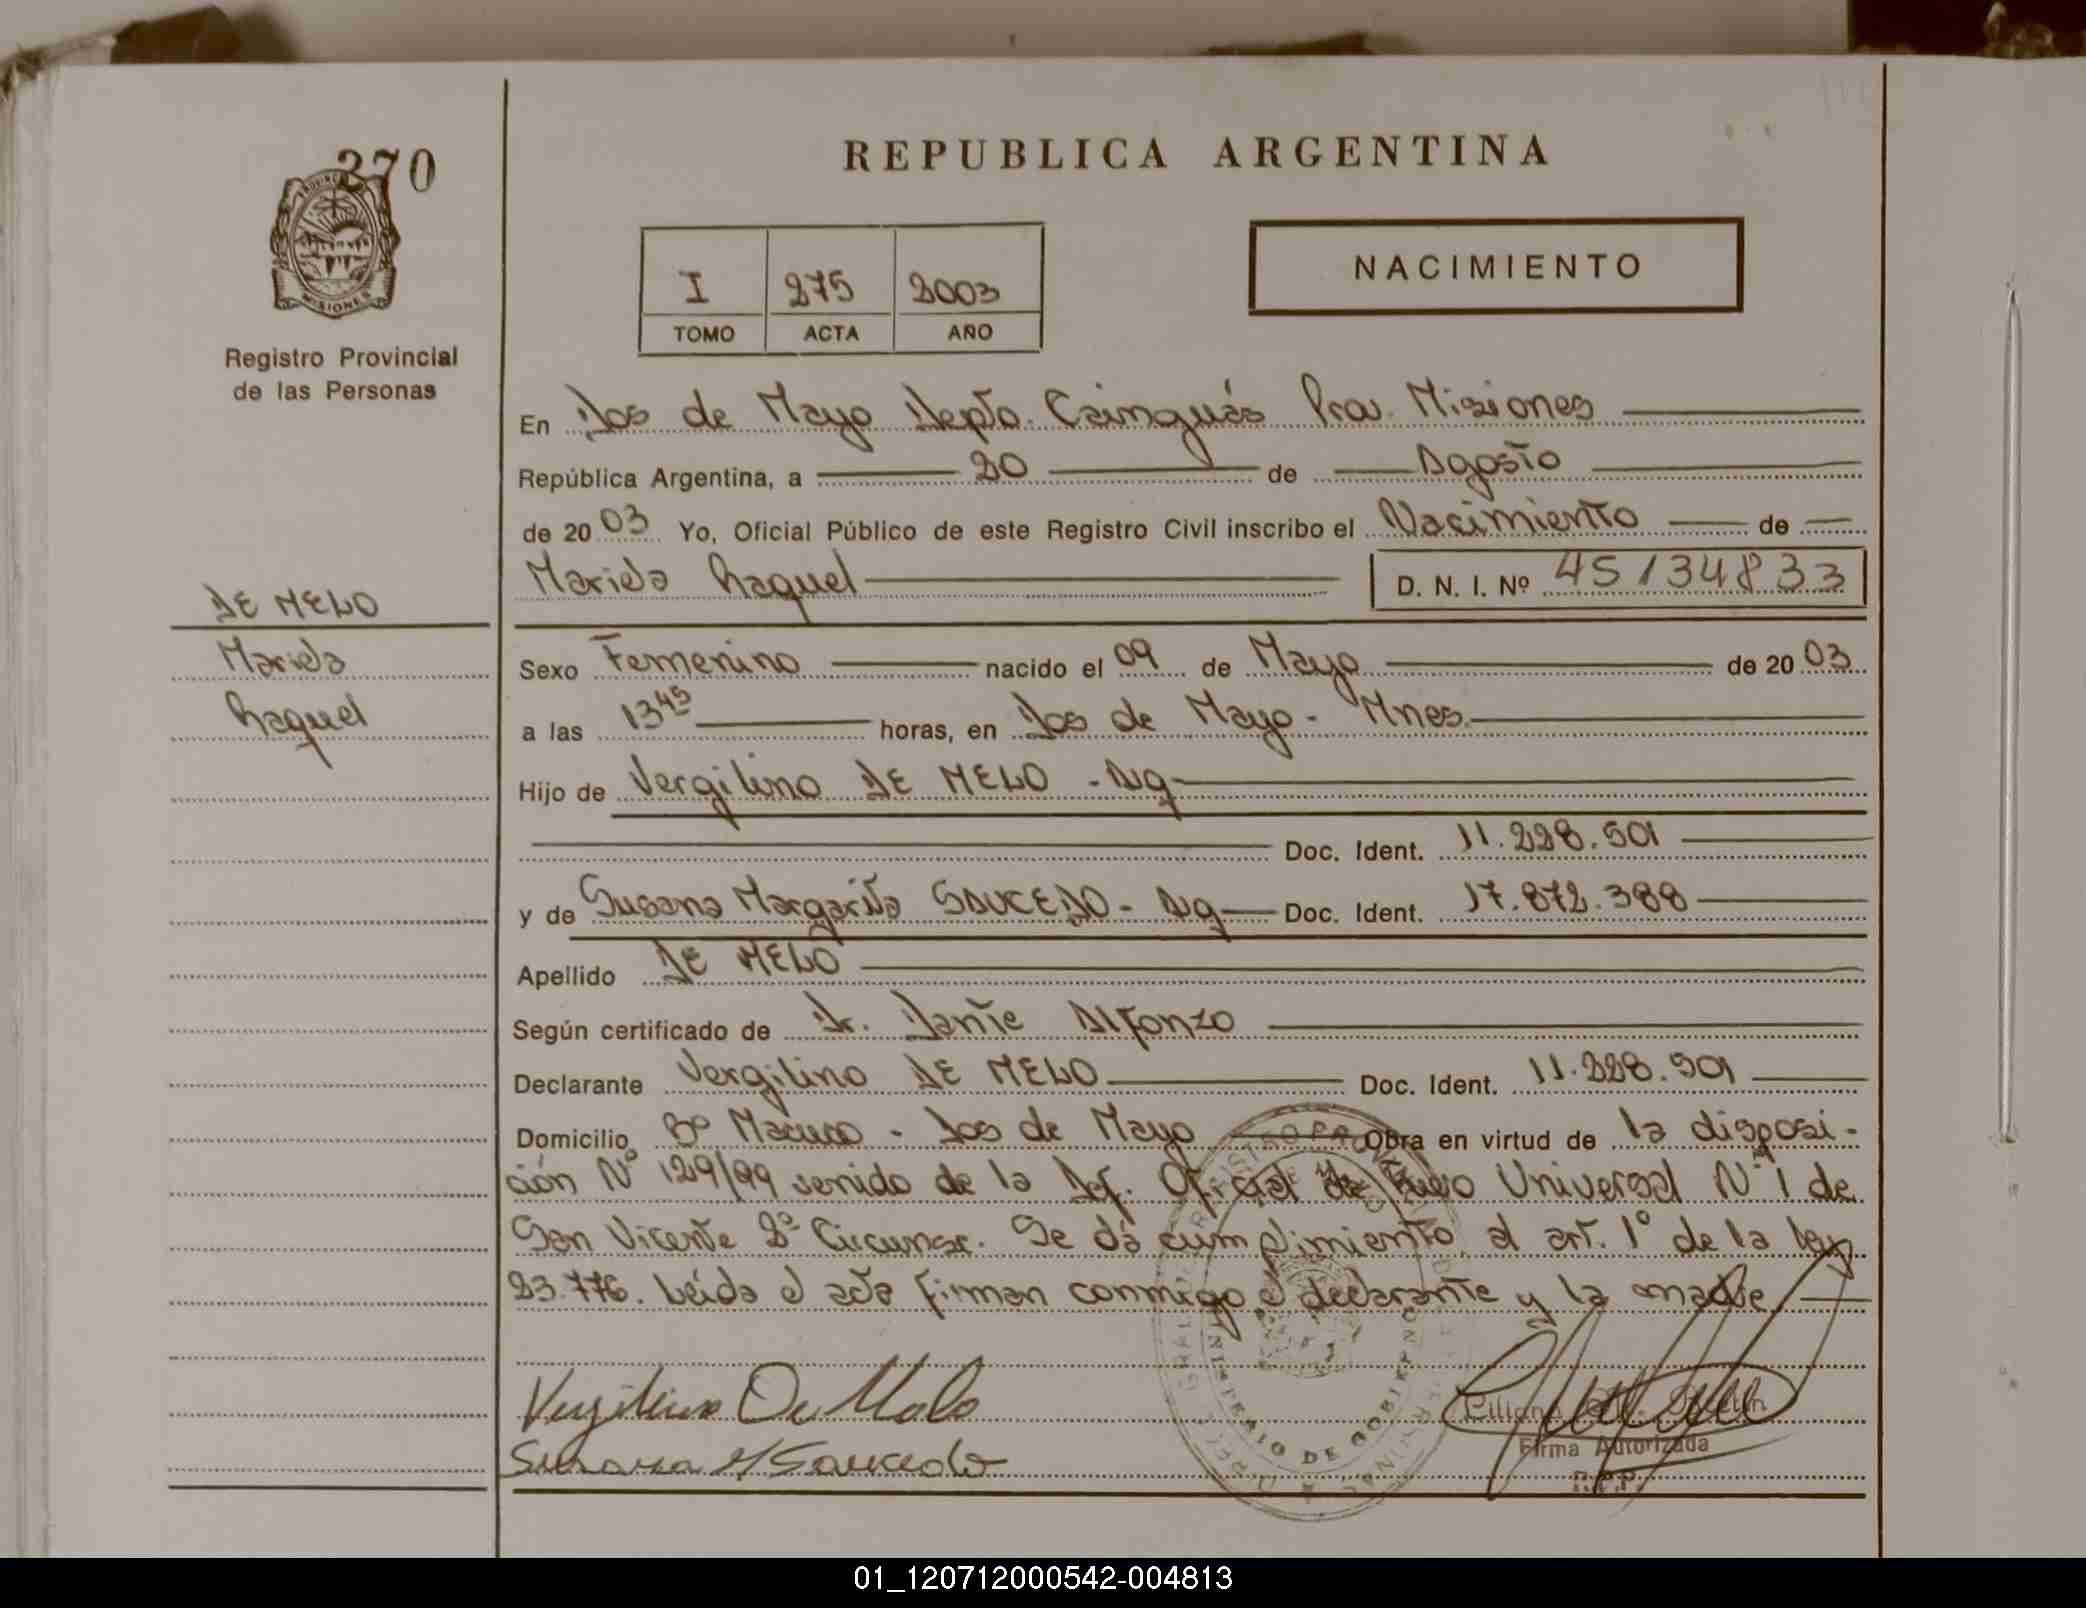 270
REPUBLICA ARGENTINA
NACIMIENTO
I 275 2003
TOMO ACTA AÑO
MISIONES
Registro Provincial
de las Personas
En Dos de Mayo Depto. Cainguás Prov. Misiones
República Argentina, a 20 de Agosto
de 2003 Yo, Oficial Público de este Registro Civil inscribo el Nacimiento de
Mariela Raquel D. N. I. Nº 45134833
DE MELO
Mariela
Raquel
Sexo Femenino nacido el 09 de Mayo de 2003
a las 13 45 horas, en Dos de Mayo - Mnes.
Hijo de Vergilino DE MELO - Arg
Doc. Ident. 11.228.501
y de Susana Margarita SAUCEDO - Arg Doc. Ident. 17.872.388
Apellido DE MELO
Según certificado de Dr. Dante Alfonzo
Declarante Vergilino DE MELO Doc. Ident. 11.228.501
Domicilio Bº Macuco - Dos de Mayo Obra en virtud de la disposi-
ción Nº 129/99 venido de la Def. Oficial de Fuero Universal Nº 1 de
San Vicente 2º Circunscr. Se dá cumplimiento al art. 1º de la ley
23.776. Leída el acta firman conmigo el declarante y la madre
Vergilino De Melo
Susana M Saucedo
Firma Autorizada
R.P.P.
MINISTERIO DE GOBIERNO
01_120712000542-004813